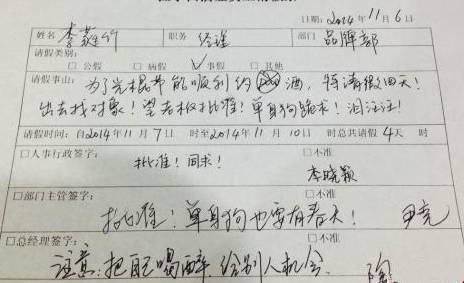 日期：2014年11月6日
姓名 李 竹 职务 经理 部门 品牌部
请假类别：
□公假 □病假 ☑事假 □其他
请假事由：为了光棍节能顺利约酒，特请假四天！
出去找对象！望老板批准！单身狗跪求！泪汪汪！
请假时间：自2014年11月7日 时至2014年11月10日 时总共请假4天 时
□人事行政签字： □不准
批准！同求！ 李晓颖
□部门主管签字： □不准
批准！单身狗也要有春天！ 尹亮
□总经理签字： □不准
注意：把自己喝醉，给别人机会。 陶